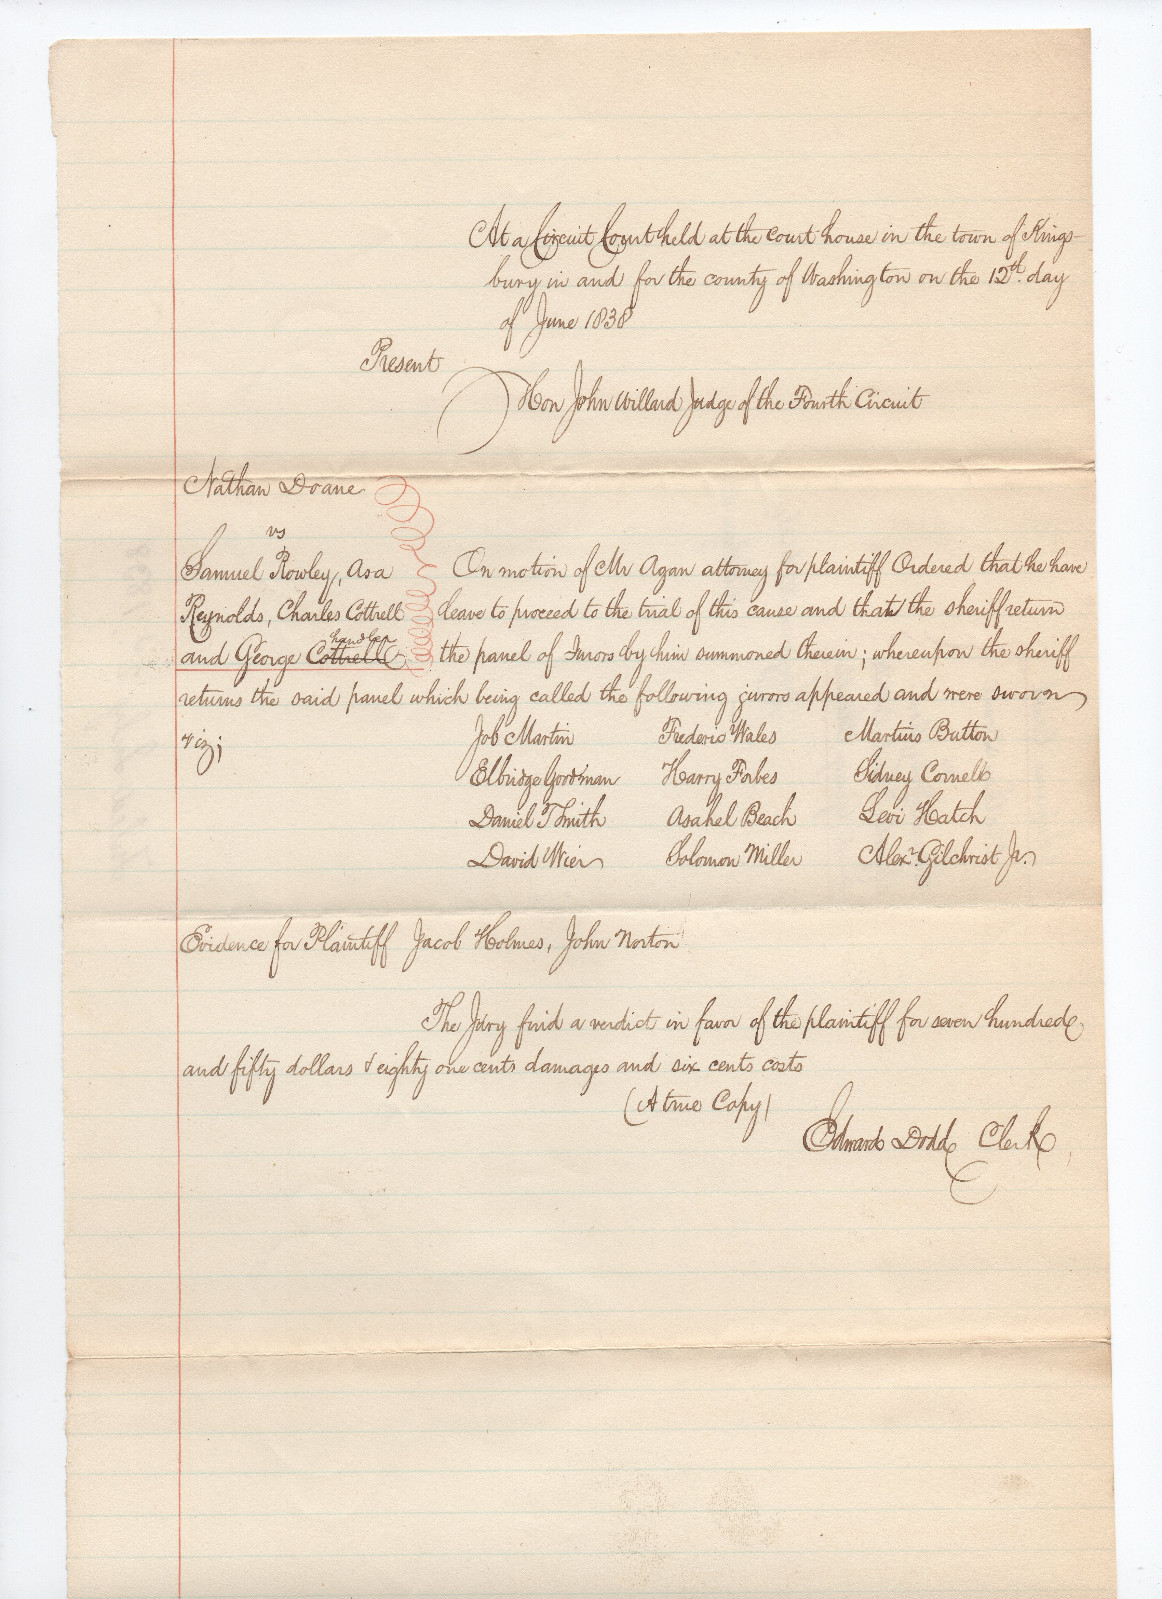 At a Circuit Court held at the court house in the town of Kings-
bury in and for the county of Washington on the 12th. day
of June 1838
Present
Hon John Willard Judge of the Fourth Circuit
Nathan Doane
vs
Samuel Rowley, Asa On motion of Mr Agan attorney for plaintiff Ordered that he have
Reynolds, Charles Cottrell leave to proceed to the trial of this cause and that the sheriff return
handler
and George Cottrell the panel of Jurors by him summoned therein; whereupon the sheriff
returns the said panel which being called the following jurors appeared and were sworn
viz; Job Martin Frederic Wales Martius Button
Elbridge Goodman Harry Forbes Sidney Cornell
Daniel T Smith Asahel Beach Levi Hatch
David Wier Solomon Miller Alexr. Gilchrist Jr.
Evidence for Plaintiff Jacob Holmes, John Norton
The Jury find a verdict in favor of the plaintiff for seven hundred
and fifty dollars & eighty one cents damages and six cents costs
(A true Copy)
Edward Dodd Clerk